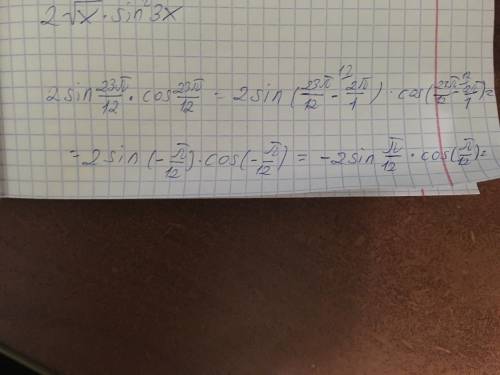 2 - √x · sin 3x
2 sin 23π/12 · cos 23π/12 = 2 sin (23π/12 - 2π/1 ^12) · cos (23π/12 - 2π/1 ^12) =
= 2 sin (-π/12) · cos (-π/12) = -2 sin π/12 · cos (π/12) =